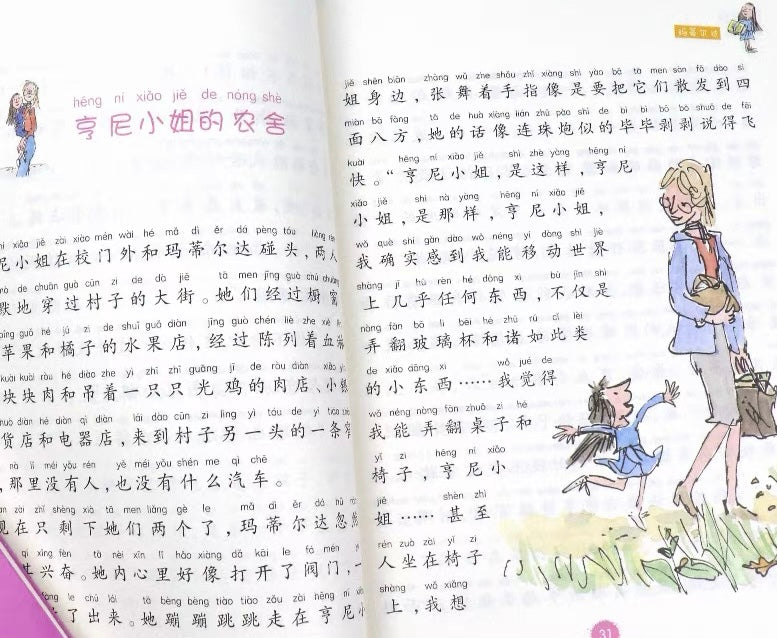 hēng ní xiǎo jiě de nóng shè
亨尼小姐的农舍
xiǎo jiě zài xiào mén wài hé mǎ dì ěr dá pèng tóu
尼小姐在校门外和玛蒂尔达碰头,两人
de chuān guò cūn zi de dà jiē tā men jīng guò chú chuāng
默地穿过村子的大街。她们经过橱窗
píng guǒ hé jú zi de shuǐ guǒ diàn jīng guò chén liè zhe xiě
苹果和橘子的水果店,经过陈列着血
kuài kuài ròu hé diào zhe yì zhī zhī guāng jī de ròu diàn xiǎo
块块肉和吊着一只只光鸡的肉店、小
huò diàn hé diàn qì diàn lái dào cūn zi lìng yì tóu de yì tiáo
货店和电器店,来到村子另一头的一条
nà lǐ méi yǒu rén yě méi yǒu shén me qì chē
,那里没有人,也没有什么汽车。
zài zhǐ shèng xià tā men liǎng gè le mǎ dì ěr dá hū
现在只剩下她们两个了,玛蒂尔达忽
qí xīng fèn tā nèi xīn lǐ hǎo xiàng dǎ kāi le fá mén yì
其兴奋。她内心里好像打开了阀门,一
le chū lái tā bèng bèng tiào tiào zǒu zài hēng ní
了出来。她蹦蹦跳跳走在亨尼小
玛蒂尔达
jiě shēn biān zhāng wǔ zhe shǒu zhǐ xiàng shì yào bǎ tā men sàn fā dào sì
姐身边,张舞着手指像是要把它们散发到四
miàn bā fāng tā de huà xiàng lián zhū pào shì de bì bì bō bō shuō de fēi
面八方,她的话像连珠炮似的毕毕剥剥说得飞
kuài hēng ní xiǎo jiě shì zhè yàng hēng ní
快。“亨尼小姐,是这样,亨尼
xiǎo jiě shì nà yàng hēng ní xiǎo jiě
小姐,是那样,亨尼小姐,
wǒ què shí gǎn dào wǒ néng yí dòng shì jiè
我确实感到我能移动世界
shàng jī hū rèn hé dōng xi bù jǐn shì
上几乎任何东西,不仅是
nòng fān bō li bēi hé zhū rú cǐ lèi
弄翻玻璃杯和诸如此类
de xiǎo dōng xi wǒ jué de
的小东西……我觉得
wǒ néng nòng fān zhuō zi hé
我能弄翻桌子和
yǐ zi hēng ní xiǎo
椅子,亨尼小
jiě shèn zhì
姐……甚至
rén zuò zài yǐ zi
人坐在椅子
shàng wǒ xiǎng
上,我想
31